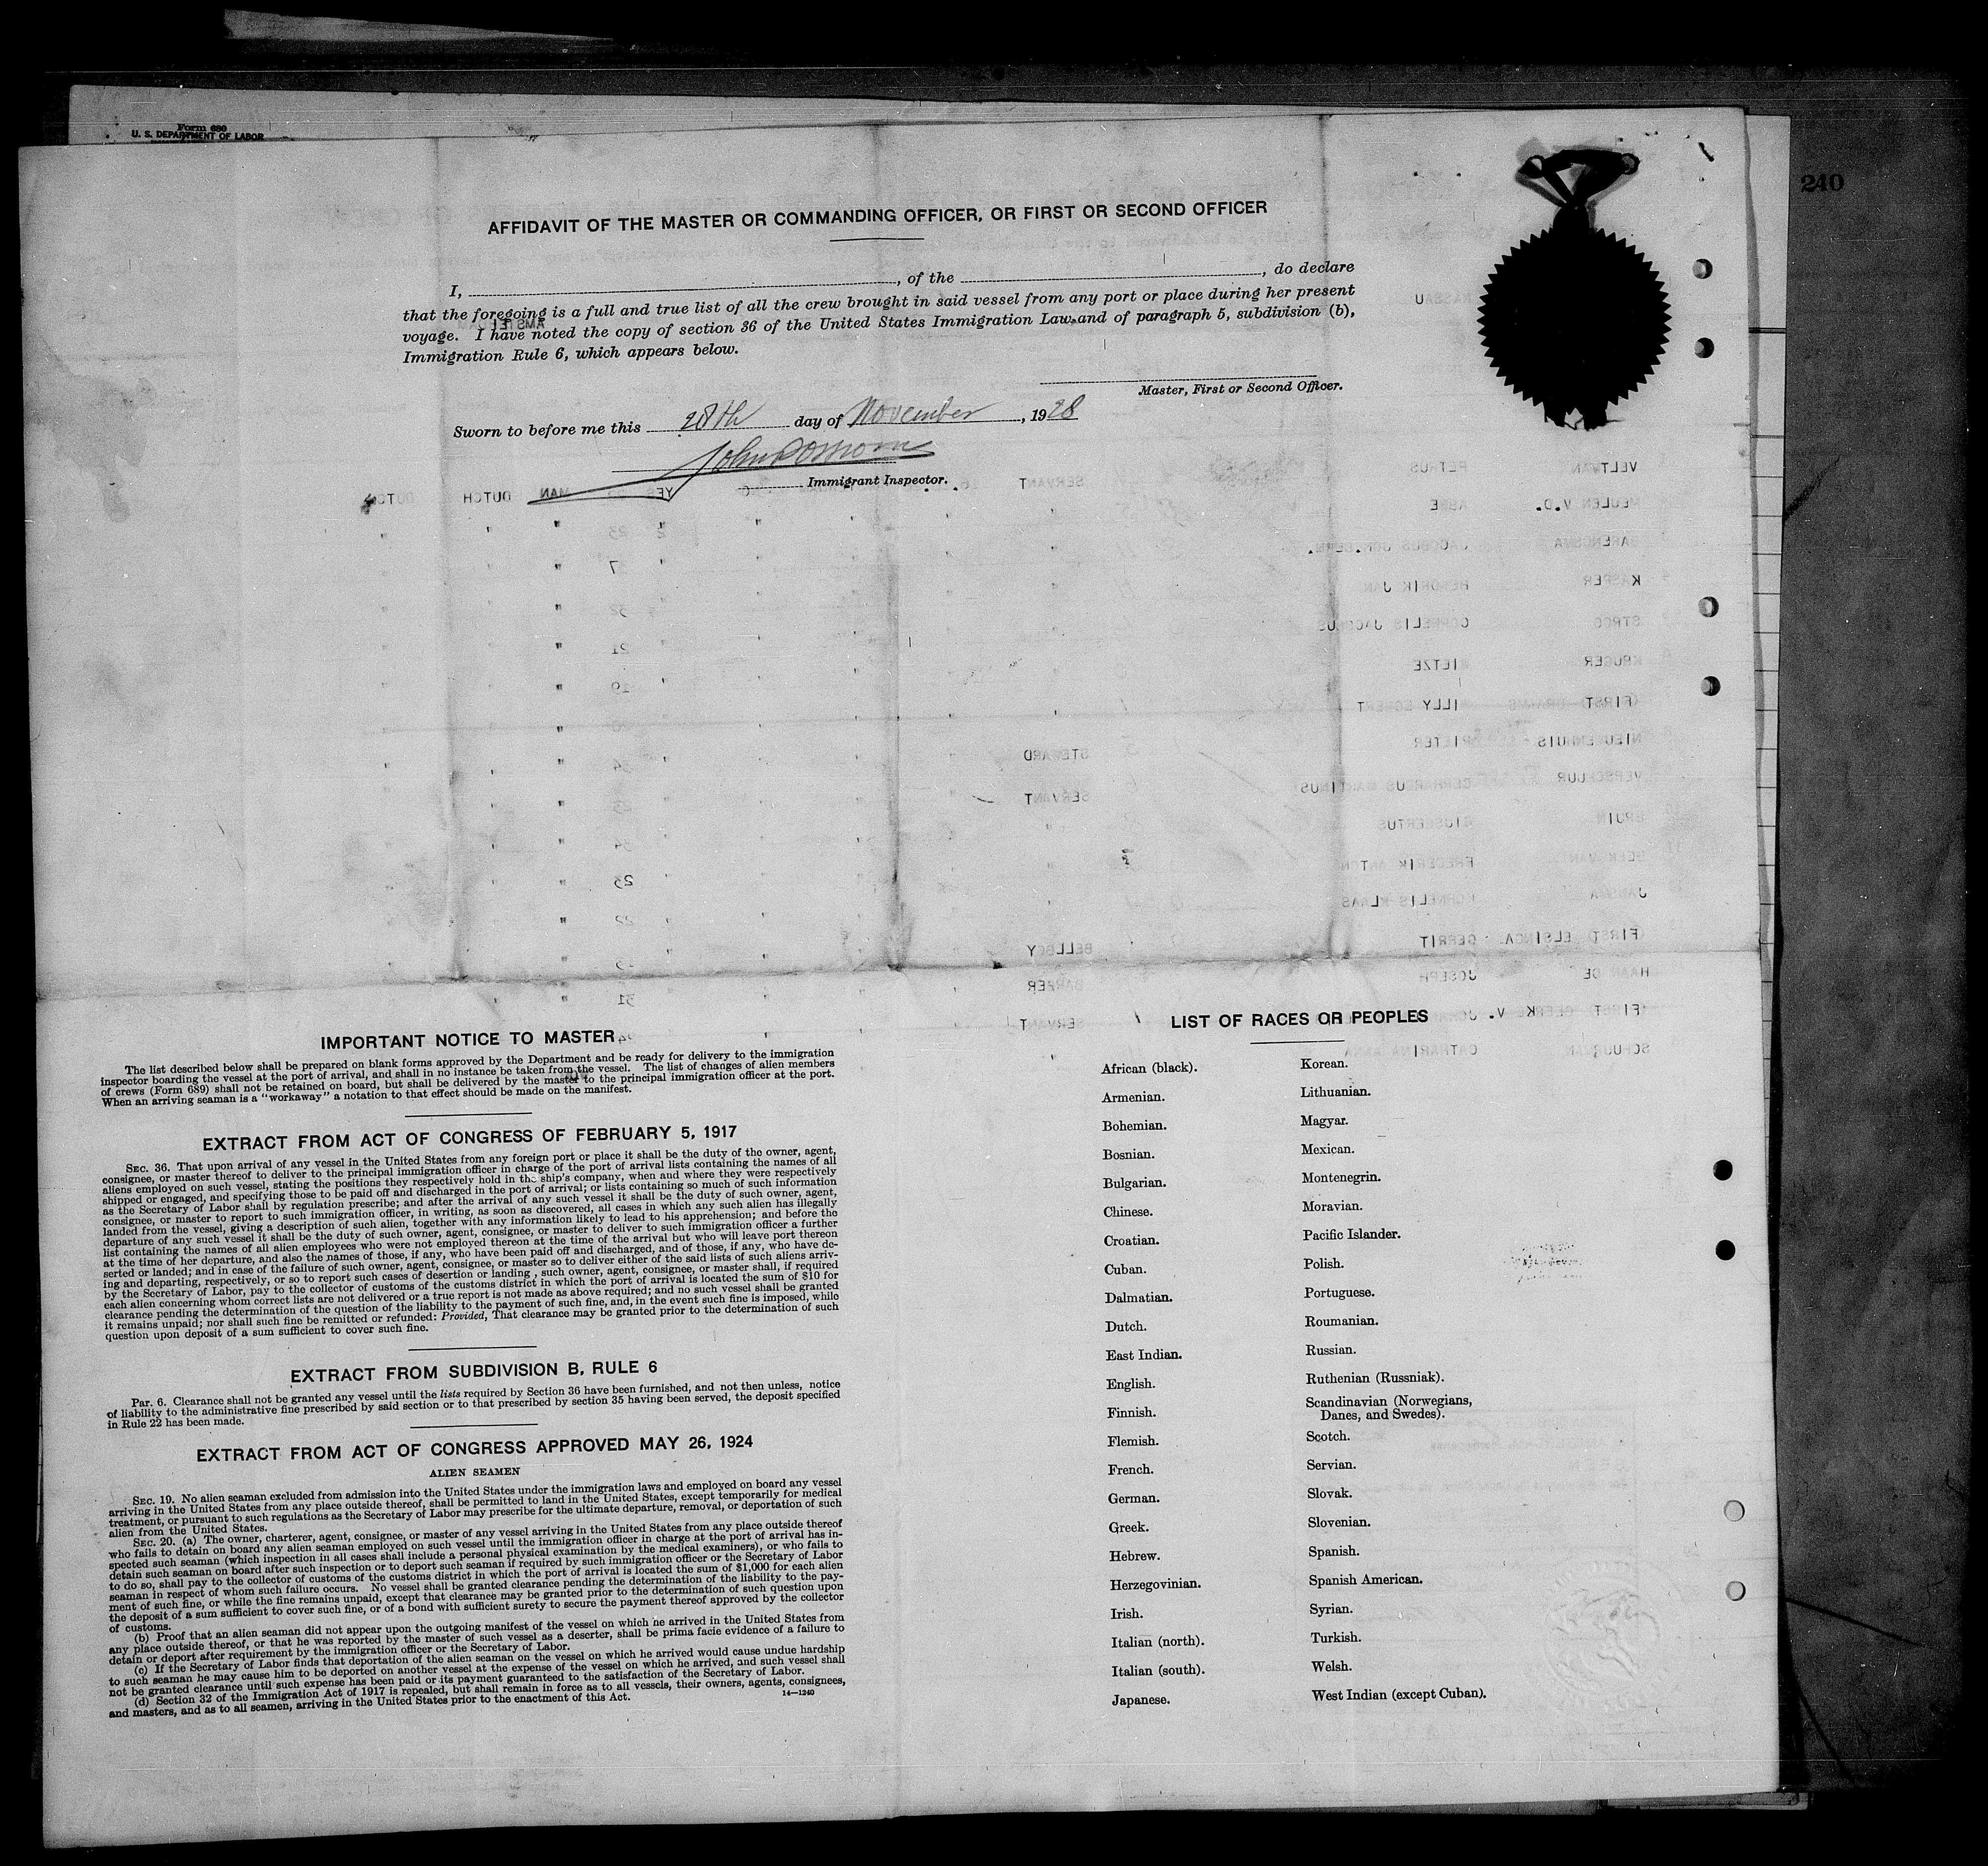 Form 680
U. S. DEPARTMENT OF LABOR
240
AFFIDAVIT OF THE MASTER OR COMMANDING OFFICER, OR FIRST OR SECOND OFFICER
I, , of the , do declare
that the foregoing is a full and true list of all the crew brought in said vessel from any port or place during her present
voyage. I have noted the copy of section 36 of the United States Immigration Law and of paragraph 5, subdivision (b),
Immigration Rule 6, which appears below.
Master, First or Second Officer.
Sworn to before me this 28th day of November, 1928
Immigrant Inspector.
IMPORTANT NOTICE TO MASTER
The list described below shall be prepared on blank forms approved by the Department and be ready for delivery to the immigration
inspector boarding the vessel at the port of arrival, and shall in no instance be taken from the vessel. The list of changes of alien members
of crews (Form 689) shall not be retained on board, but shall be delivered by the master to the principal immigration officer at the port.
When an arriving seaman is a "workaway" a notation to that effect should be made on the manifest.
EXTRACT FROM ACT OF CONGRESS OF FEBRUARY 5, 1917
SEC. 36. That upon arrival of any vessel in the United States from any foreign port or place it shall be the duty of the owner, agent,
consignee, or master thereof to deliver to the principal immigration officer in charge of the port of arrival lists containing the names of all
aliens employed on such vessel, stating the positions they respectively hold in the ship's company, when and where they were respectively
shipped or engaged, and specifying those to be paid off and discharged in the port of arrival; or lists containing so much of such information
as the Secretary of Labor shall by regulation prescribe; and after the arrival of any such vessel it shall be the duty of such owner, agent,
consignee, or master to report to such immigration officer, in writing, as soon as discovered, all cases in which any such alien has illegally
landed from the vessel, giving a description of such alien, together with any information likely to lead to his apprehension; and before the
departure of any such vessel it shall be the duty of such owner, agent, consignee, or master to deliver to such immigration officer a further
list containing the names of all alien employees who were not employed thereon at the time of the arrival but who will leave port thereon
at the time of her departure, and also the names of those, if any, who have been paid off and discharged, and of those, if any, who have de-
serted or landed; and in case of the failure of such owner, agent, consignee, or master so to deliver either of the said lists of such aliens arriv-
ing and departing, respectively, or so to report such cases of desertion or landing , such owner, agent, consignee, or master shall, if required
by the Secretary of Labor, pay to the collector of customs of the customs district in which the port of arrival is located the sum of $10 for
each alien concerning whom correct lists are not delivered or a true report is not made as above required; and no such vessel shall be granted
clearance pending the determination of the question of the liability to the payment of such fine, and, in the event such fine is imposed, while
it remains unpaid; nor shall such fine be remitted or refunded: Provided, That clearance may be granted prior to the determination of such
question upon deposit of a sum sufficient to cover such fine.
EXTRACT FROM SUBDIVISION B, RULE 6
Par. 6. Clearance shall not be granted any vessel until the lists required by Section 36 have been furnished, and not then unless, notice
of liability to the administrative fine prescribed by said section or to that prescribed by section 35 having been served, the deposit specified
in Rule 22 has been made.
EXTRACT FROM ACT OF CONGRESS APPROVED MAY 26, 1924
ALIEN SEAMEN
SEC. 19. No alien seaman excluded from admission into the United States under the immigration laws and employed on board any vessel
arriving in the United States from any place outside thereof, shall be permitted to land in the United States, except temporarily for medical
treatment, or pursuant to such regulations as the Secretary of Labor may prescribe for the ultimate departure, removal, or deportation of such
alien from the United States.
SEC. 20. (a) The owner, charterer, agent, consignee, or master of any vessel arriving in the United States from any place outside thereof
who fails to detain on board any alien seaman employed on such vessel until the immigration officer in charge at the port of arrival has in-
spected such seaman (which inspection in all cases shall include a personal physical examination by the medical examiners), or who fails to
detain such seaman on board after such inspection or to deport such seaman if required by such immigration officer or the Secretary of Labor
to do so, shall pay to the collector of customs of the customs district in which the port of arrival is located the sum of $1,000 for each alien
seaman in respect of whom such failure occurs. No vessel shall be granted clearance pending the determination of the liability to the pay-
ment of such fine, or while the fine remains unpaid, except that clearance may be granted prior to the determination of such question upon
the deposit of a sum sufficient to cover such fine, or of a bond with sufficient surety to secure the payment thereof approved by the collector
of customs.
(b) Proof that an alien seaman did not appear upon the outgoing manifest of the vessel on which he arrived in the United States from
any place outside thereof, or that he was reported by the master of such vessel as a deserter, shall be prima facie evidence of a failure to
detain or deport after requirement by the immigration officer or the Secretary of Labor.
(c) If the Secretary of Labor finds that deportation of the alien seaman on the vessel on which he arrived would cause undue hardship
to such seaman he may cause him to be deported on another vessel at the expense of the vessel on which he arrived, and such vessel shall
not be granted clearance until such expense has been paid or its payment guaranteed to the satisfaction of the Secretary of Labor.
(d) Section 32 of the Immigration Act of 1917 is repealed, but shall remain in force as to all vessels, their owners, agents, consignees,
and masters, and as to all seamen, arriving in the United States prior to the enactment of this Act.
14—1240
LIST OF RACES OR PEOPLES
African (black).
Armenian.
Bohemian.
Bosnian.
Bulgarian.
Chinese.
Croatian.
Cuban.
Dalmatian.
Dutch.
East Indian.
English.
Finnish.
Flemish.
French.
German.
Greek.
Hebrew.
Herzegovinian.
Irish.
Italian (north).
Italian (south).
Japanese.
Korean.
Lithuanian.
Magyar.
Mexican.
Montenegrin.
Moravian.
Pacific Islander.
Polish.
Portuguese.
Roumanian.
Russian.
Ruthenian (Russniak).
Scandinavian (Norwegians,
Danes, and Swedes).
Scotch.
Servian.
Slovak.
Slovenian.
Spanish.
Spanish American.
Syrian.
Turkish.
Welsh.
West Indian (except Cuban).